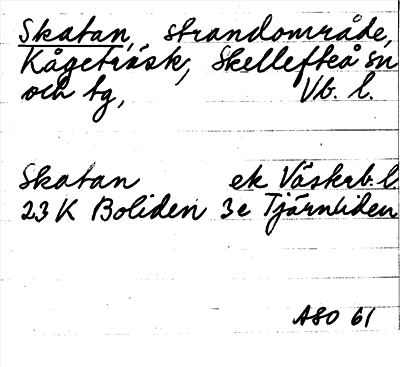 Skatan, strandområde,
Kågeträsk, Skellefteå sn
och tg, Vb. l.
Skatan ek Västerb. l
23 K Boliden 3e Tjärnliden
ASO 61